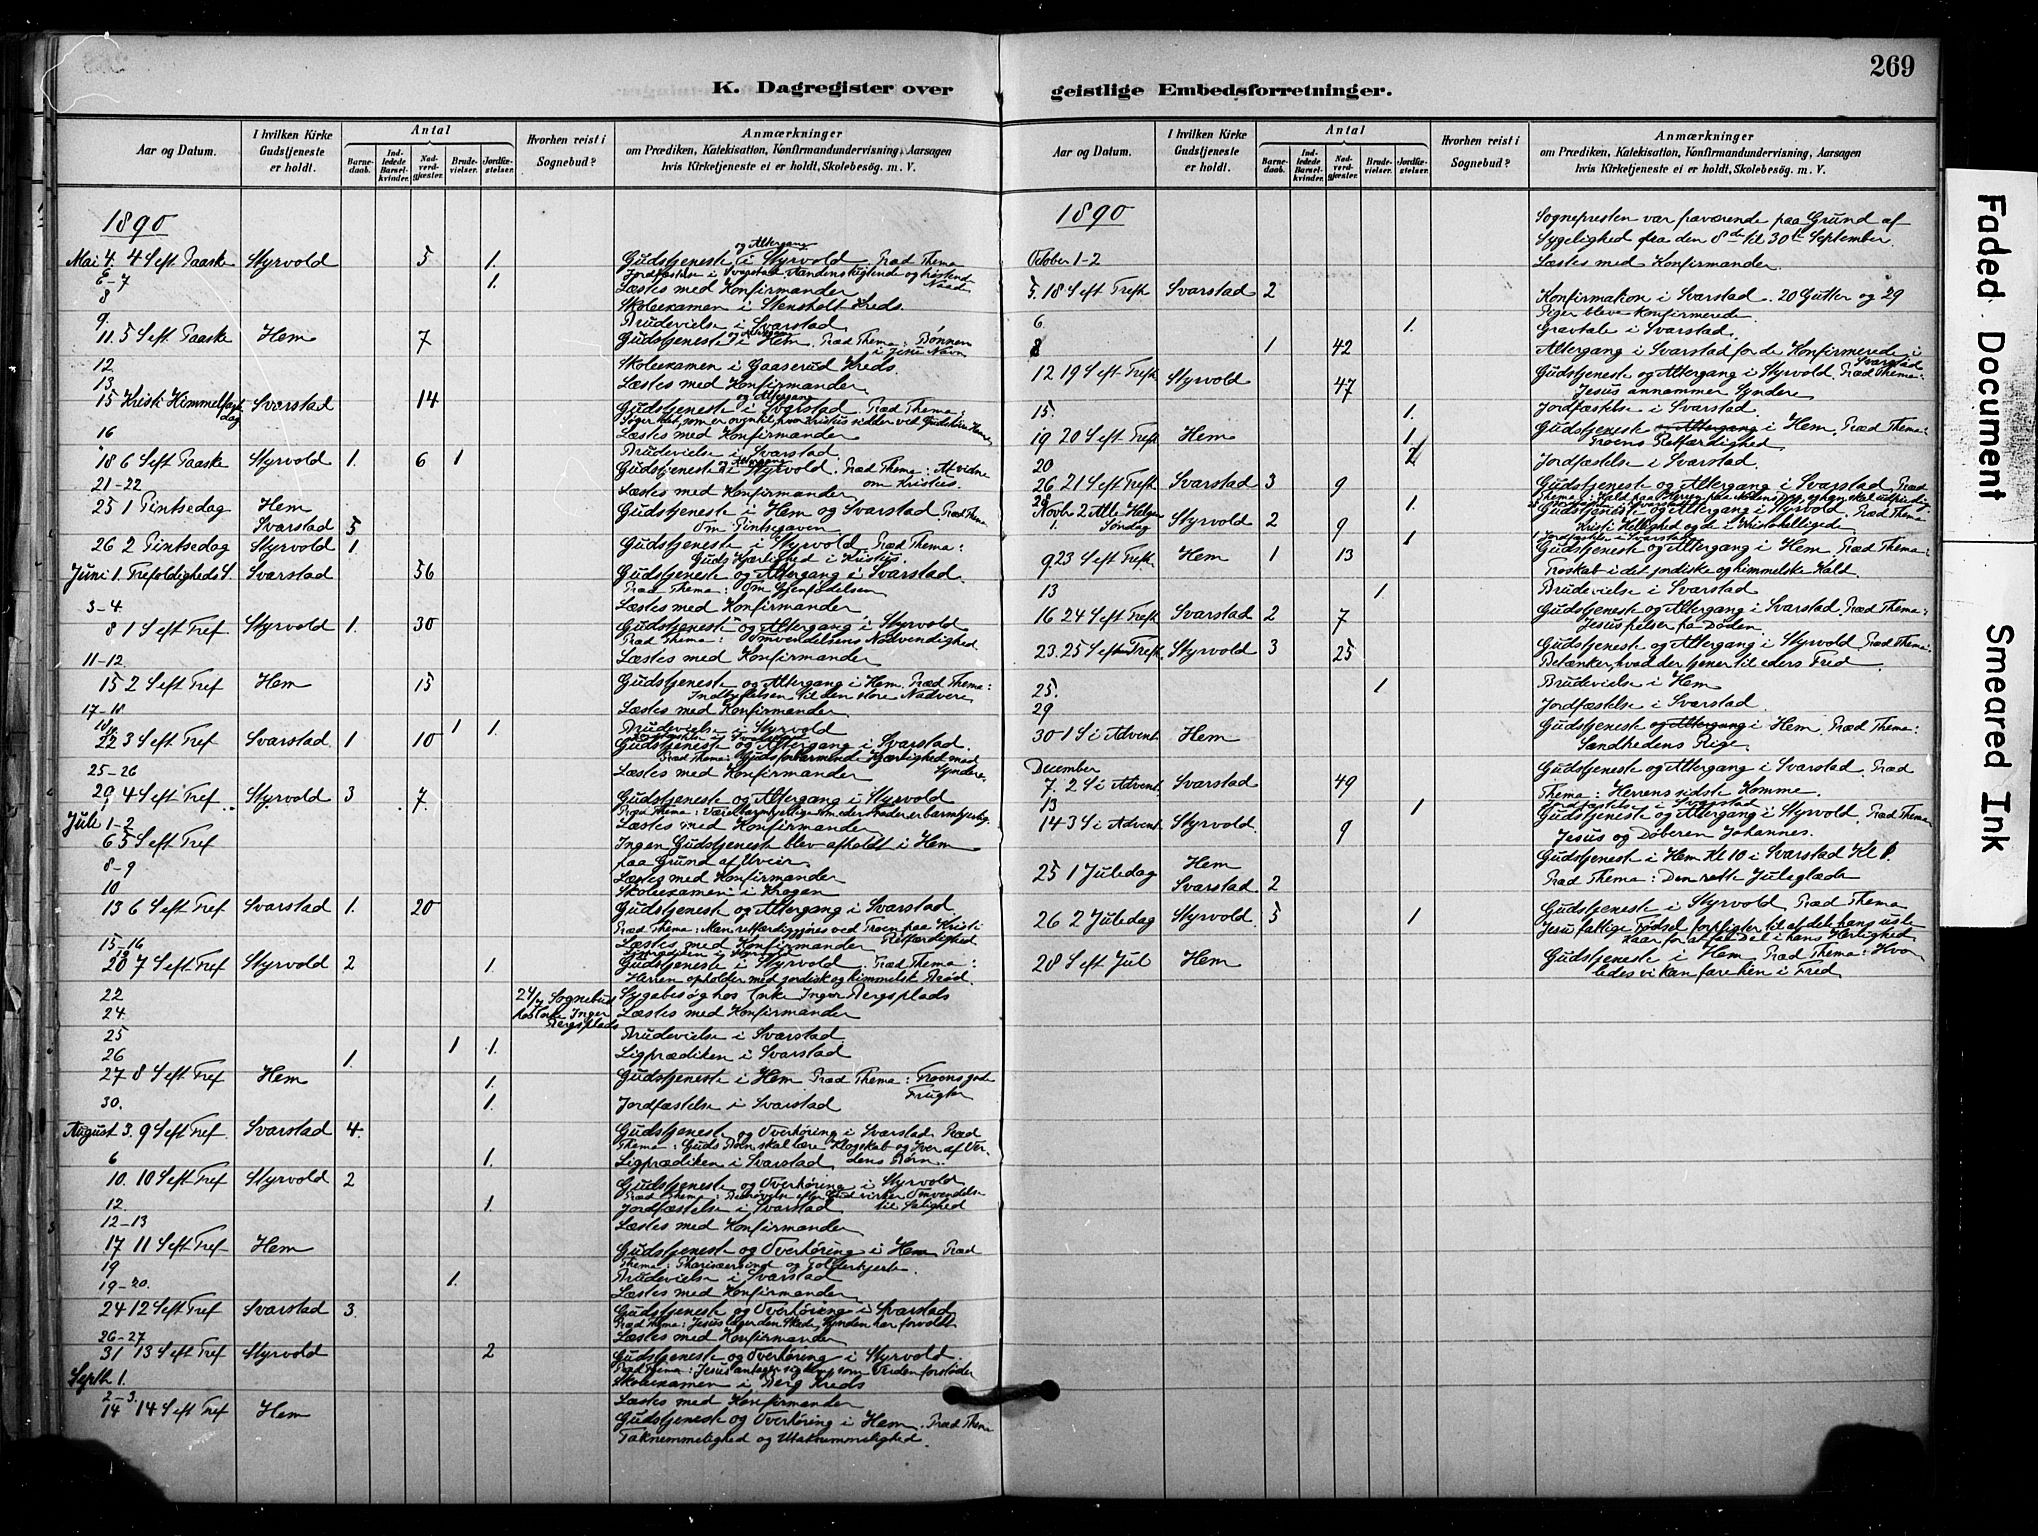 269
K. Dagregister over geistlige Embedsforretninger.
Aar og Datum.
I hvilken Kirke Gudstjeneste er holdt.
Antal
Barnedaab.
Indledede Barselkvinder.
Nadverdgjæster.
Brudevielser.
Jordfæstelser.
Hvorhen reist i Sognebud?
Anmærkninger
om Prædiken, Katekisation, Konfirmandundervisning, Aarsagen
hvis Kirketjeneste ei er holdt, Skolebesøg. m. V.
1890
Mai 4. 4 S eft. Paaske Styrvold 5 1. Gudstjeneste og Altergang i Styrvold. Præd Thema
6-7 1. Læstes med Konfirmander
8 Skoleexamen i Stensholt Kreds.
9. Brudevielse i Svarstad
11. 5 S eft. Paaske Hem 7 Gudstjeneste og Altergang i Hem. Præd Thema: Bønnen i Jesu Navn
12 Skoleexamen i Gaaserud Kreds.
13 Læstes med Konfirmander
15 Kristi Himmelfartsdag Svarstad 14 Gudstjeneste og Altergang i Svarstad. Præd Thema:
16 Læstes med Konfirmander
Brudevielse i Svarstad
18 6 S eft Paaske Styrvold 1. 6 1 Gudstjeneste og Altergang i Styrvold. Præd Thema: At vidne om Kristus.
21-22 Læstes med Konfirmander
25 1 Pintsedag Hem Gudstjeneste i Hem og Svarstad. Præd Thema
Svarstad 5 Om Pintsegaven
26 2 Pintsedag Styrvold 1. Gudstjeneste i Styrvold. Præd Thema:
Guds Kjærlighed i Kristus.
Juni 1. Trefoldigheds S. Svarstad 56 Gudstjeneste og Altergang i Svarstad.
Præd Thema: Om Gjenfødelsen
3-4. Læstes med Konfirmander
8 1 S eft Tref Styrvold 1. 30 Gudstjeneste og Altergang i Styrvold
Præd Thema: Omvendelsens Nødvendighed
11-12. Læstes med Konfirmander
15 2 S eft Tref Hem 15 Gudstjeneste og Altergang i Hem. Præd Thema:
Indbydelsen til den store Nadvere
17-18 Læstes med Konfirmander
1 1. Brudevielse i Styrvold
22 3 S eft Tref Svarstad 1 10 Gudstjeneste og Altergang i Svarstad.
Præd Thema: Guds forbarmende Kjærlighed mod Syndere.
25-26 Læstes med Konfirmander
29 4 S eft Tref Styrvold 3 7. Gudstjeneste og Altergang i Styrvold
Juli 1-2 Læstes med Konfirmander
6 5 S eft Tref Ingen Gudstjeneste blev afholdt i Hem
paa Grund af Uveir.
8-9 Læstes med Konfirmander
10 Skoleexamen i Krogen
13 6 S eft Tref Svarstad 1. 20 Gudstjeneste og Altergang i Svarstad
Præd Thema: Man retfærdiggjøres ved Troen paa Kristi Retfærdighed
15-16 Læstes med Konfirmander
20 7 S eft Tref Styrvold 2 1. Gudstjeneste i Styrvold. Præd Thema:
Herren opholder med jordisk og himmelsk Brød.
22 24/7 Sognebud hos Enke Inger Bergsplads Sygebesøg hos Enke Inger Bergsplads
24. Læstes med Konfirmander
25 Brudevielse i Svarstad
26 1. 1 1. Ligprædiken i Svarstad
27 8 S eft Tref Hem 1. Gudstjeneste i Hem Præd Thema: Troens gode Frugter
30. 1. Jordfæstelse i Svarstad
August 3. 9 S eft Tref. Svarstad 4. Gudstjeneste og Overhøring i Svarstad. Præd
Thema: Guds Børn skal lære Klogskab og Iver af Verdens Børn.
6 1. Ligprædiken i Svarstad
10. 10 S eft Tref Styrvold 2 Gudstjeneste og Overhøring i Styrvold
Præd Thema: Bedrøvelse efter Gud virker Omvendelse til Salighed
12 1. Jordfæstelse i Svarstad
12-13 Læstes med Konfirmander
17 11 S eft Tref Hem Gudstjeneste og Overhøring i Hem Præd
Thema: Pharisæersind og Tolderhjerte.
19 1. Brudevielse i Svarstad
19-20. Læstes med Konfirmander
24 12 S eft Tref Svarstad 3. Gudstjeneste og Overhøring i Svarstad
Præd Thema: Jesus læger den Skade, Synden har forvoldt
26-27 Læstes med Konfirmander
31 13 S eft Tref Styrvold 2 Gudstjeneste og Overhøring i Styrvold.
Septb 1. Skoleexamen i Berg Kreds
2-3. Læstes med Konfirmander
14 14 S eft Tref Hem Gudstjeneste og Overhøring i Hem. Præd Thema
Taknemmelighed og Utaknemmelighed.
Aar og Datum.
I hvilken Kirke Gudstjeneste er holdt.
Antal
Barnedaab.
Indledede Barselkvinder.
Nadverdgjæster.
Brudevielser.
Jordfæstelser.
Hvorhen reist i Sognebud?
Anmærkninger
om Prædiken, Katekisation, Konfirmandundervisning, Aarsagen
hvis Kirketjeneste ei er holdt, Skolebesøg. m. V.
1890
Sognepresten var fraværende paa Grund af
Sygelighed fra den 8de til 30te September.
October 1-2 Læstes med Konfirmander.
5. 18 S eft Trefh Svarstad 2 Konfirmation i Svarstad. 20 Gutter og 29
Piger bleve konfirmerede.
6. 1. Gravtale i Svarstad.
8 1 42 Altergang i Svarstad for de Konfirmerede i Svarstad
12 19 S eft Trefh Styrvold 47 Gudstjeneste og Altergang i Styrvold. Præd Thema:
Jesus annammer Syndere.
15. 1. Jordfæstelse i Svarstad.
19 20 S eft Trefh Hem 1. Gudstjeneste og Altergang i Hem. Præd Thema:
Troens Retfærdighed
20 2 Jordfæstelse i Svarstad.
26 21 S eft Trefh Svarstad 3 9 Gudstjeneste og Altergang i Svarstad Præd
Novbr 2 Alle Helgens Søndag Styrvold 2 9 1. Gudstjeneste og Altergang i Styrvold. Præd Thema
Kristi Hellighed og de i Kristo hellige
1 Jordfæstelse i Svarstad
9 23 S eft Trefh. Hem 1 13 Gudstjeneste og Altergang i Hem Præd Thema:
Troskab i det jordiske og himmelske Kald.
13 1. Brudevielse i Svarstad
16 24 S eft Trefh Svarstad 2 7 Gudstjeneste og Altergang i Svarstad. Præd Thema:
Jesus frelser fra Døden
23. 25 S eft Trefh. Styrvold 3 25 Gudstjeneste og Altergang i Styrvold Præd Thema:
Betænker, hvad der tjener til eders Fred.
25. 1 Brudevielse i Hem
29 Jordfæstelse i Svarstad.
30 1 S i Advent Hem Gudstjeneste og Altergang i Hem. Præd Thema:
Sandhedens Rige.
December
7. 2 S i Advent Svarstad 49 Gudstjeneste og Altergang i Svarstad. Præd
Thema: Herrens sidste Komme.
13 1 Jordfæstelse i Svarstad
14 3 S i Advent Styrvold. 9 Gudstjeneste og Altergang i Styrvold. Præd Thema
Jesus og Døberen Johannes.
25 1 Juledag Hem Gudstjenest i Hem Kl 10 i Svarstad Kl 1.
Svarstad 2 Præd Thema: Den rette Juleglæde
26 2 Juledag Styrvold 5 1 Gudstjeneste i Styrvold Præd Thema
28 S eft Jul Hem Gudstjeneste i Hem Præd Thema: Hvorledes vi kan fare hen i Fred
Faded Document
Smeared Ink